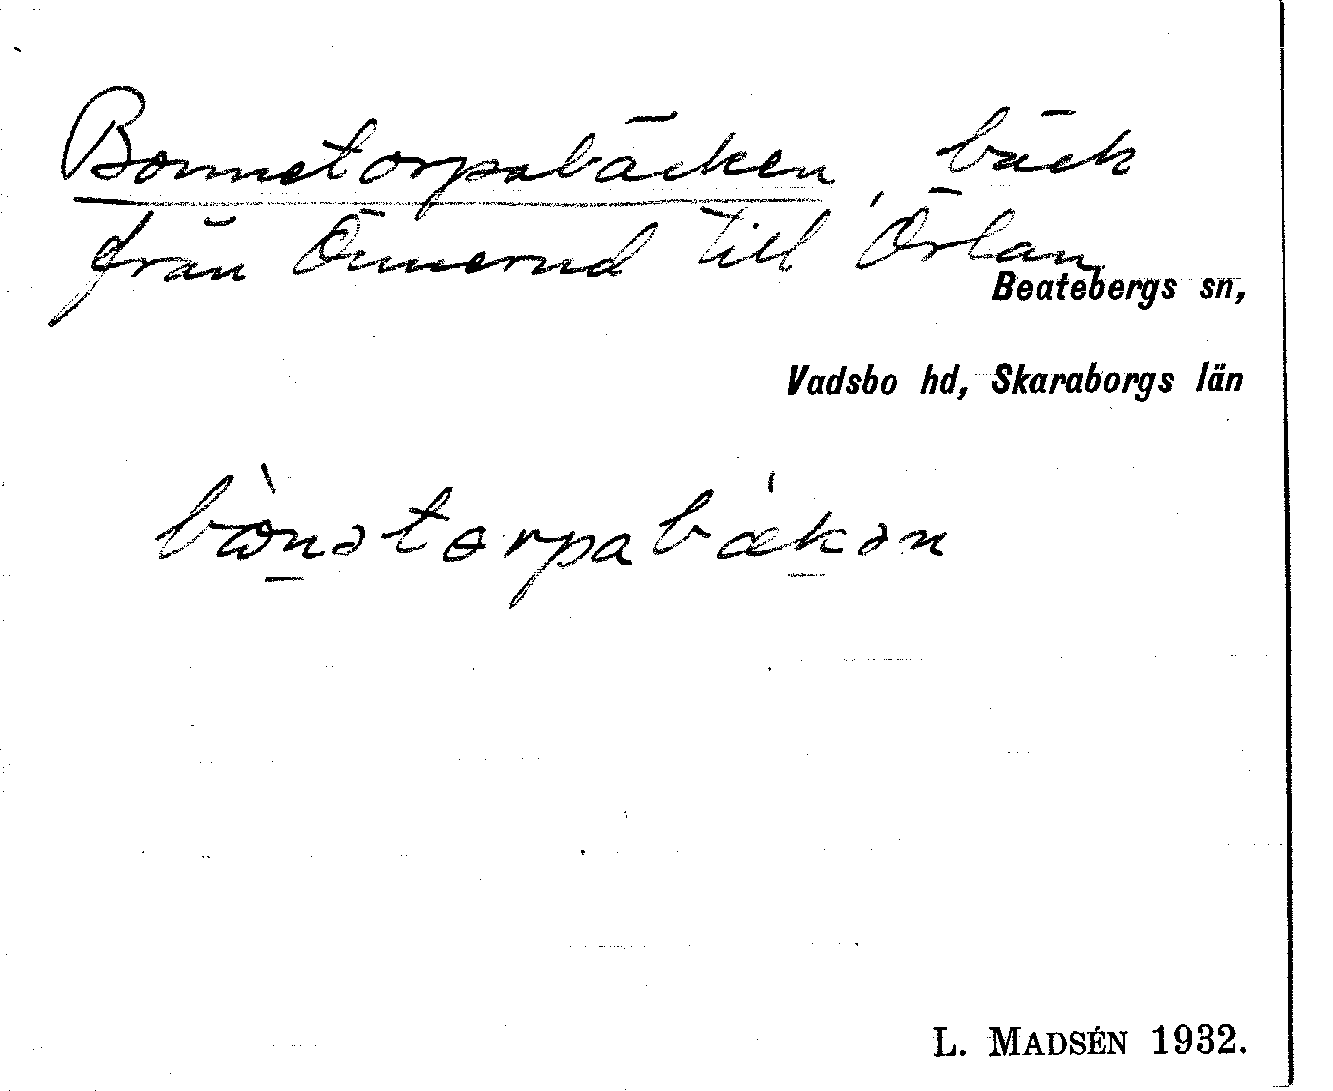 Bonnetorpabäcken, bäck
från Ömmerud till Örlan
Beatebergs sn,
Vadsbo hd, Skaraborgs län
bònətorpabækən
L. MADSÉN 1932.